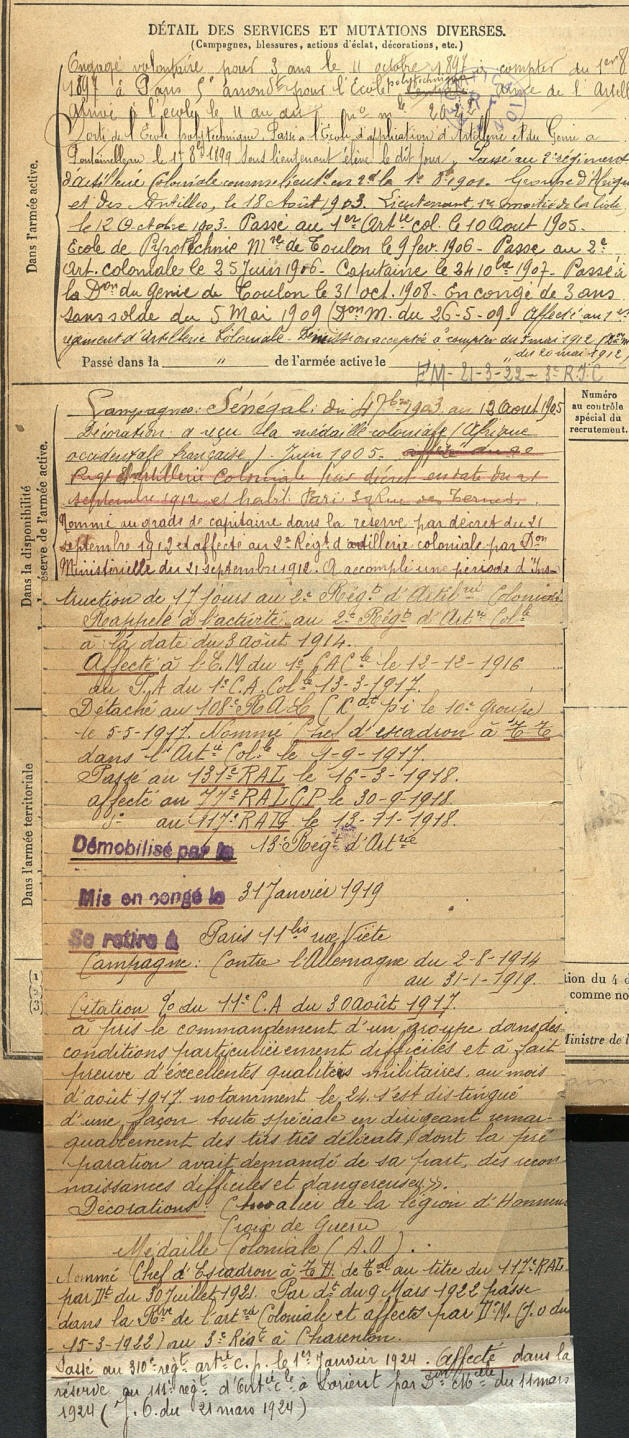 DÉTAIL DES SERVICES ET MUTATIONS DIVERSES.
(Campagnes, blessures, actions d'éclat, décorations, etc.)
Engagé volontaire pour 3 ans le 11 octobre 1897 à compter du 1er 8
1897 à Paris 5e arrondt pour l'École polytechnique arme de l'Artill
Arrivé à l'école le 11 au dit
Sorti de l'École polytechnique. Passé à l'École d'application d'Artillerie et du Génie à
Fontainebleau le 1r 8 1899 sous lieutenant élève le dit jour. Passé au 2e régiment
d'artillerie Coloniale comme lieut en 2d le 1er 1901. Groupe d'Afrique
et des Antilles, le 18 Août 1903. Lieutenant 1re moitié de la liste
le 12 Octobre 1903. Passé au 1er Artie col. le 10 Aout 1905.
École de Pyrotechnie Mre de Toulon le 9 fev. 1906 - Passé au 2e
Art. coloniale le 25 Juin 1906. Capitaine le 24 10bre 1907. Passé à
la Don du génie de Toulon le 31 oct. 1908. En congé de 3 ans
sans solde du 5 Mai 1909 (Don M. du 26-5-09. Affecté au 1er
régiment d'artillerie Coloniale. Démission acceptée à compter du 5 mai 1912 (
du 20 mai 1912)
Dans l'armée active.
Passé dans la " de l'armée active le
EM-21-3-22-3e R.A.C
Numéro
au contrôle
spécial du
recrutement.
Campagnes: Sénégal: du 4 7bre 1903 au 12 Aout 1905
Décoration a reçu la médaille coloniale (Afrique
occidentale française). Juin 1905. affecté au 2e
Régt d'artillerie Coloniale par décret en date du 21
septembre 1912 et habit. Paris 39 Rue des Ternes.
Nommé au grade de capitaine dans la réserve par décret du 21
septembre 1912 et affecté au 2e Régt d'artillerie coloniale par Don
Ministérielle du 21 septembre 1912. A accompli une période d'Ins-
truction de 17 jours au 2e Régt d'Artilrie Coloniale
Rappelé à l'activité au 2e Régt d'Artie Cole
à la date du 3 août 1914.
Dans la disponibilité
réserve de l'armée active.
Affecté à l'E.M du 1er CACle le 12-12-1916
au P.A du 1er C.A. Colle 13-3-1917.
Détaché au 108e RAL ( le 10e groupe)
le 5-5-1917. Nommé Chef d'escadron à T.T
dans l'Artie Cole le 1-9-1917.
Passé au 131e RAL le 16-3-1918.
affecté au 77e RALGP le 30-9-1918.
do au 117e RALG le 13-11-1918.
Démobilisé par le 13e Régt d'Artie
Mis en congé le 31 Janvier 1919
Se retire à Paris 11bis rue Viète
Dans l'armée territoriale
Campagne: Contre l'Allemagne du 2-8-1914
au 31-1-1919.
Citation % du 11e C.A du 30 août 1917.
à pris le commandement d'un groupe dans des
conditions particulièrement difficiles et à fait
preuve d'excellentes qualités militaires, au mois
d'août 1917 notamment le 24. s'est distingué
d'une façon toute spéciale en dirigeant remar-
quablement des tirs très délicats, dont la pré
paration avait demandé de sa part, des recon
naissances difficiles et dangereuses ».
tion du 4 d
comme no
Ministre de l
Décorations: Chevalier de la légion d'Honneur
Croix de Guerre
Médaille Coloniale (A.O).
Nommé Chef d'Escadron à T.D. de Tal au titre du 117e RAL
par Dt du 30 Juillet 1921. Par dt du 9 Mars 1922 passe
dans la Rve de l'artie Coloniale et affecté par D.M. (J.O du
15-3-1922) au 3e Régt à Charenton.
Passé au 310e régt artie c. p. le 1er Janvier 1924. Affecté dans la
réserve au 111e régt d'artie cle à Lorient par Don Mielle du 11 mars
1924 (J.O. du 21 mars 1924)